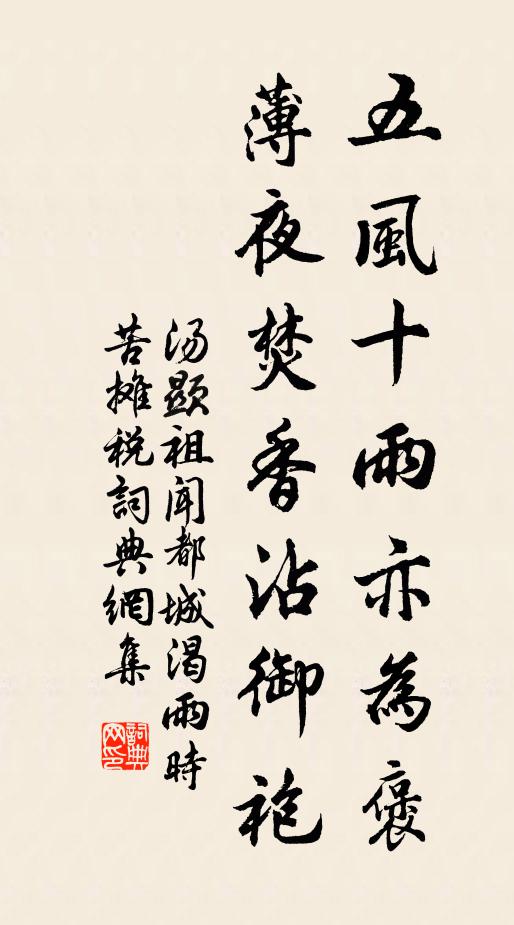 五風十雨亦為褒
薄夜焚香沾御袍
汤顯祖闻都城渴雨時
苦攤税詞典網集
詞典
网印